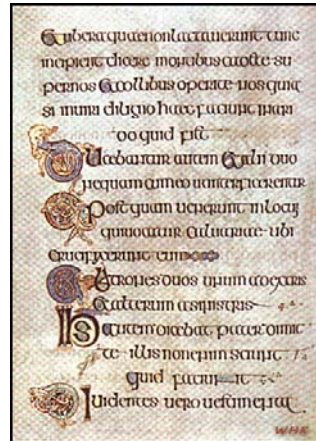 Et ubera quae non lactauerunt tunc
incipient dicere montibus cadite su
per nos et collibus operite nos quia
si in ligno haec faciunt inari
do quid fi&
Ducebantur autem et alii duo
nequam cum eo ut interficerentur
Et postquam uenerunt in locum
qui uocatur caluariae ubi
crucifixerunt eum
Et latrones duos unum a dextris
et alterum a sinistris
Ihs autem dicebat pater dimit
te illis non enim sciunt
quid faciunt
Diuidentes uero uestimenta
WHK